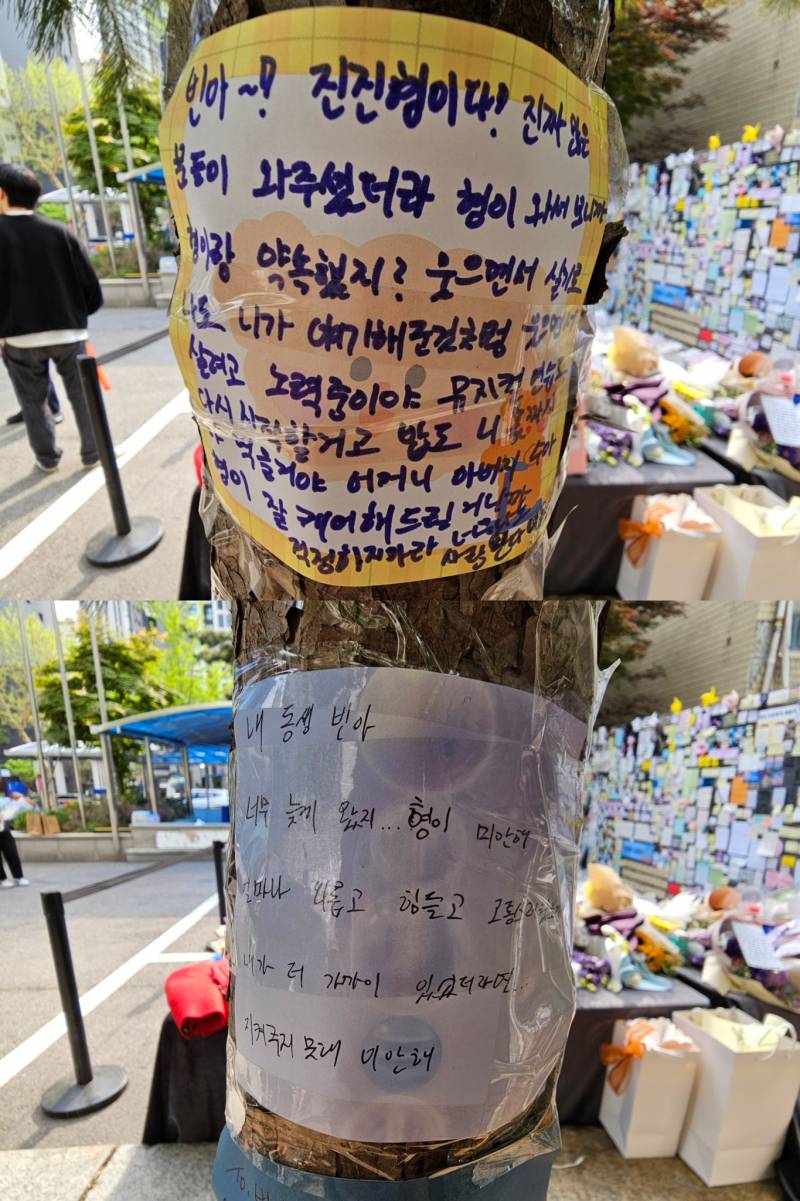 빈아~! 진진형이다! 진짜 많은
분들이 와주셨더라 형이 와서 보니까
형이랑 약속했지? 웃으면서 살기로
나도 니가 얘기해준것처럼 웃으면서
살려고 노력중이야 뮤지컬 연습도
다시 시작할거고 밥도 니
먹을거야 어머니 아버지 수아
형이 잘 케어해드릴거니깐
걱정하지마라
내 동생 빈아
너무 늦게 왔지... 형이 미안해
얼마나 외롭고 힘들고
내가 더 가까이 있었더라면...
지켜주지 못해 미안해
To.